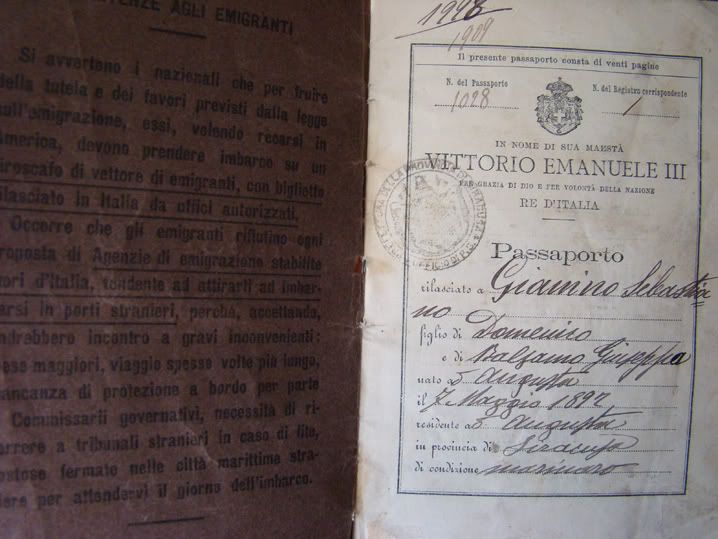 TENZE AGLI EMIGRANTI
Si avvertono i nazionali che per fruire
della tutela e dei favori previsti dalla legge
sull'emigrazione, essi, volendo recarsi in
America, devono prendere imbarco su un
piroscafo di vettore di emigranti, con biglietto
rilasciato in Italia da uffici autorizzati.
Occorre che gli emigranti rifiutino ogni
proposta di Agenzie di emigrazione stabilite
uori d'Italia, tendente ad attirarli ad imbar-
arsi in porti stranieri, perchè, accettando,
ndrebbero incontro a gravi inconvenienti:
pese maggiori, viaggio spesse volte più lungo,
ancanza di protezione a bordo per parte
Commissarii governativi, necessità di ri-
orrere a tribunali stranieri in caso di lite,
ostose fermate nelle città marittime stra-
iere per attendervi il giorno dell'imbarco.
1928
1929
Il presente passaporto consta di venti pagine
N. del Passaporto
1028
N. del Registro corrispondente
1
IN NOME DI SUA MAESTÀ
VITTORIO EMANUELE III
PER GRAZIA DI DIO E PER VOLONTÀ DELLA NAZIONE
RE D'ITALIA
Passaporto
rilasciato a Giannino Sebastia-
no
figlio di Domenico
e di Balsamo Giuseppa
nato a Augusta
il 7 Maggio 1897
residente a Augusta
in provincia di Siracusa
di condizione marinaro